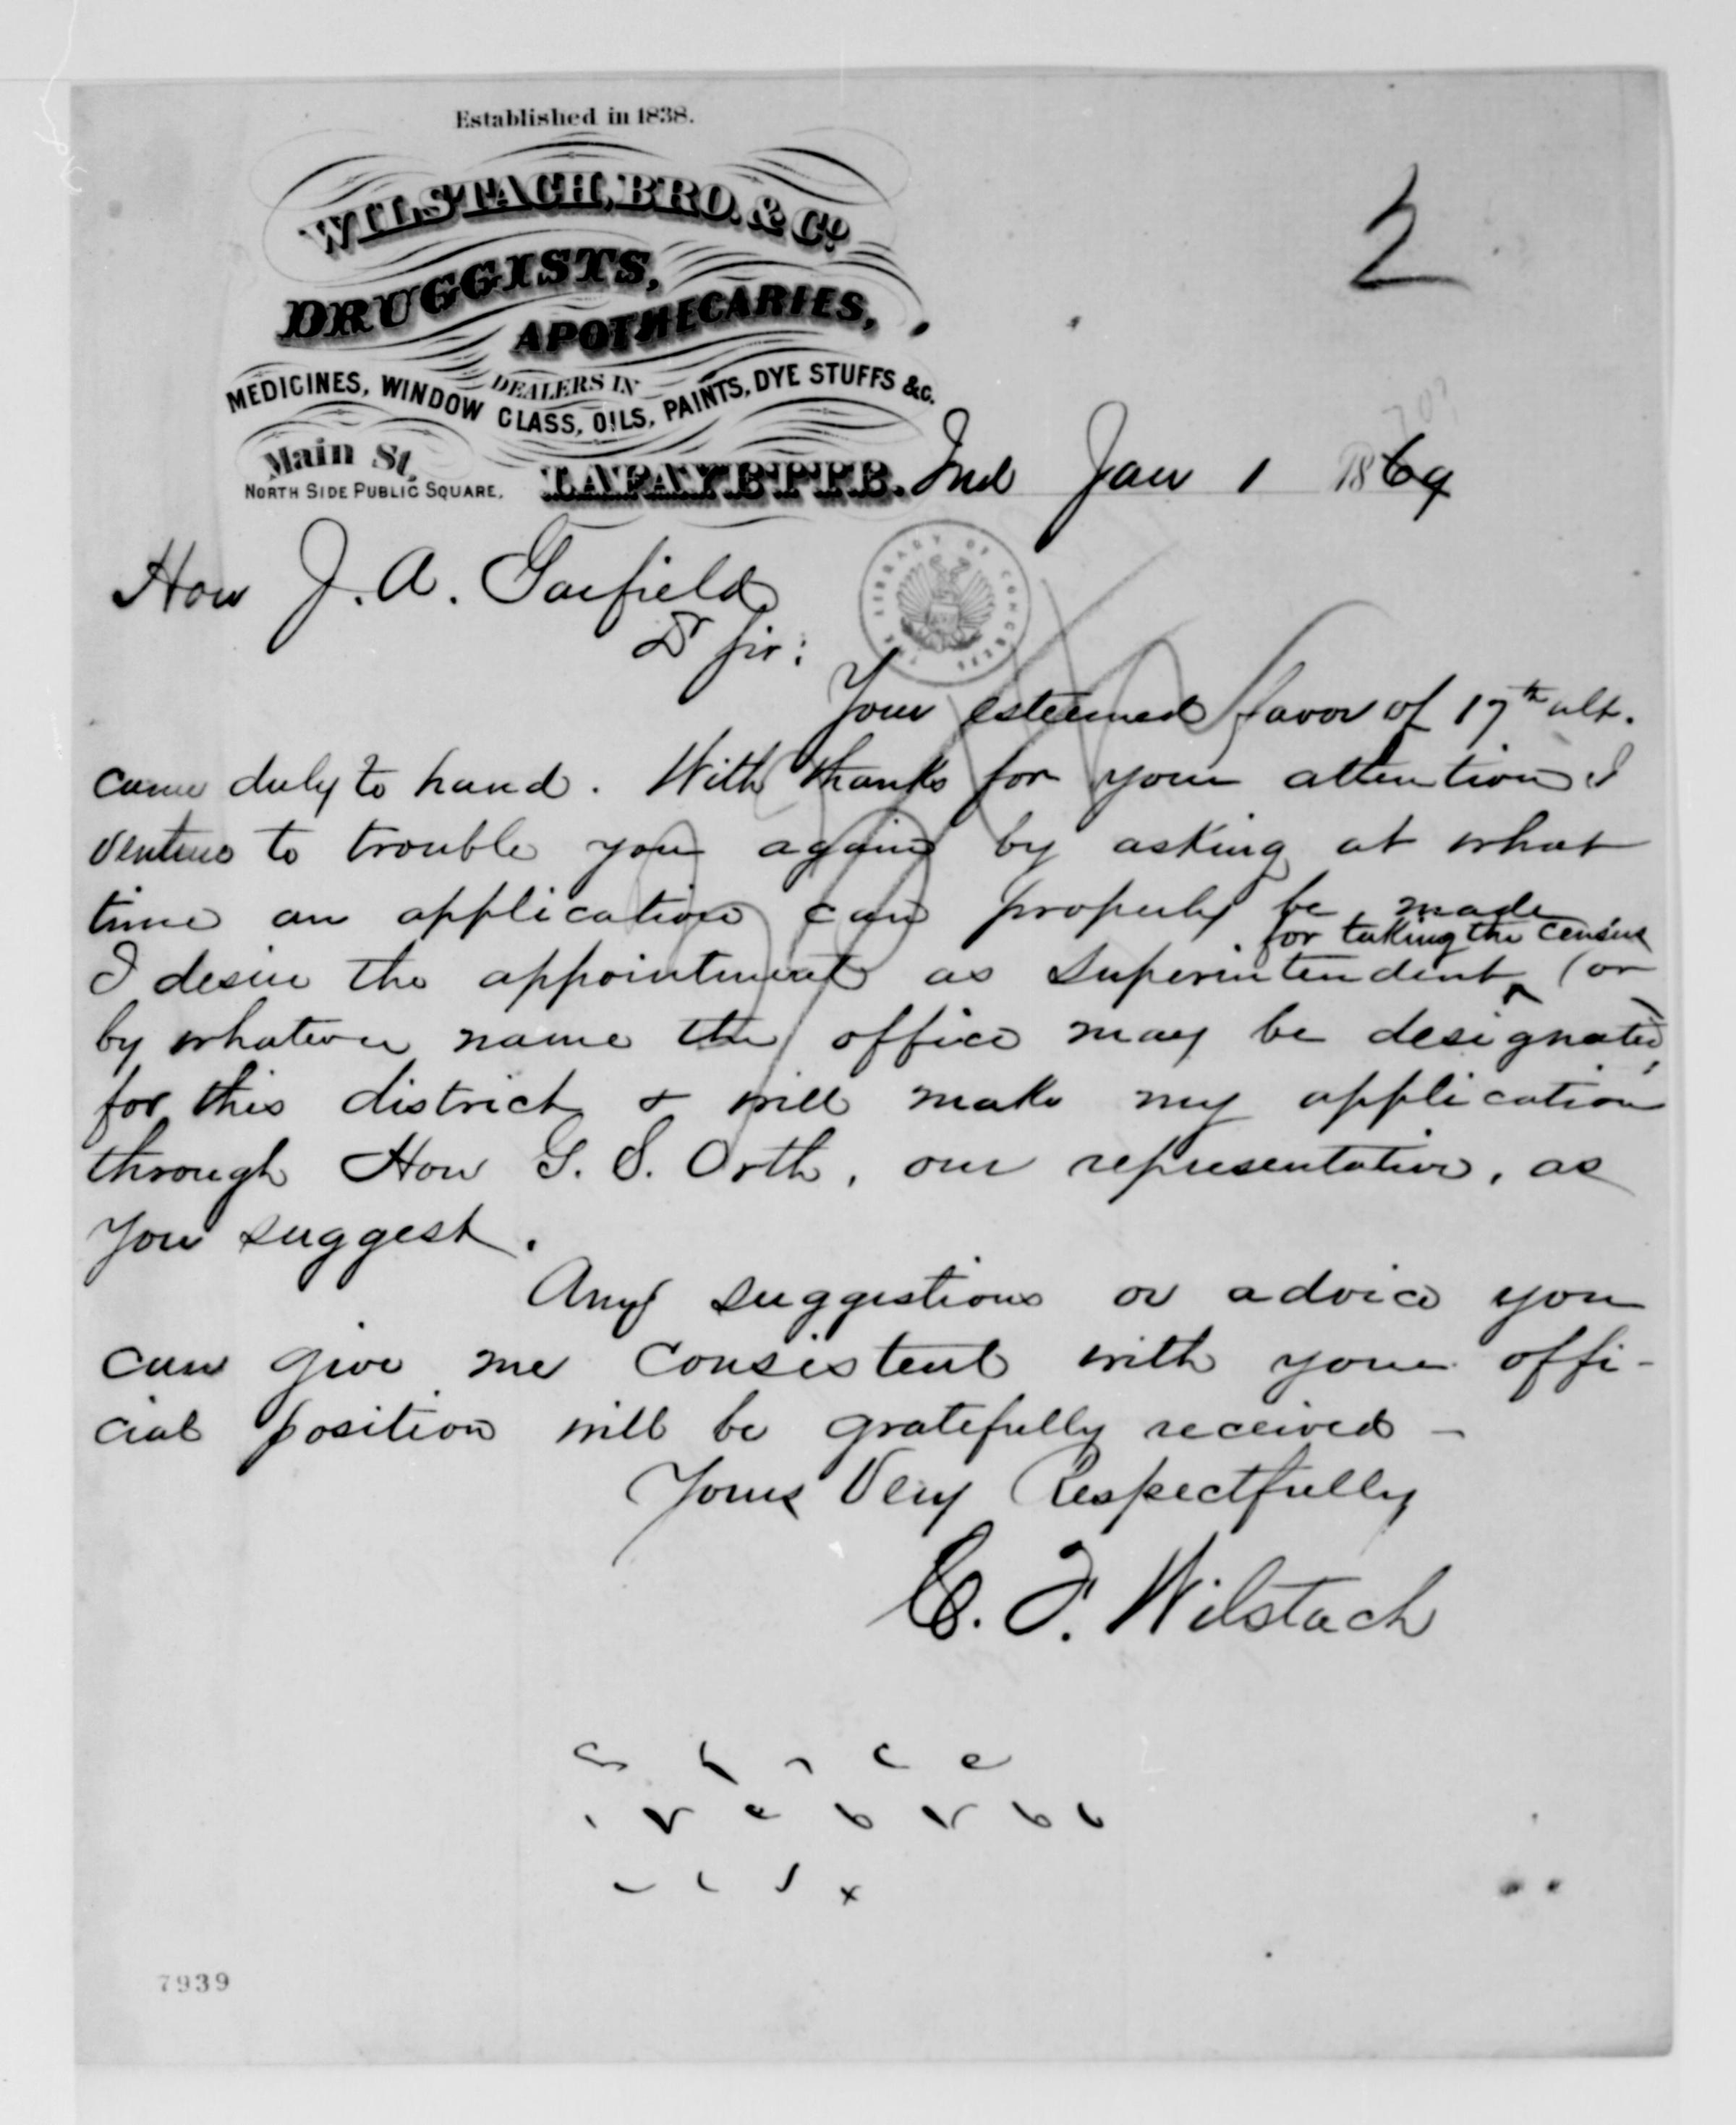 Established in 1838.
2
WILSTACH, BRO. & Co.
DRUGGISTS,
APOTHECARIES,
DEALERS IN
MEDICINES, WINDOW GLASS, OILS, PAINTS, DYE STUFFS &C.
Main St.
NORTH SIDE PUBLIC SQUARE.
LAFAYETTE. Ind Jan 1 1869
Hon J. A. Garfield
Dr Sir:
THE LIBRARY OF CONGRESS
Your esteemed favor of 17th ult.
came duly to hand. With thanks for your attention I
venture to trouble you again by asking at what
time an application can properly be made
for taking the census
I desire the appointment as Superintendent ^ (or
by whatever name the office may be designated)
for this district & will make my application
through Hon G. S. Orth, our representative, as
you suggest.
Any suggestions or advice you
can give me consistent with your offi-
cial position will be gratefully received -
Yours Very Respectfully
C. F. Wilstach
7939